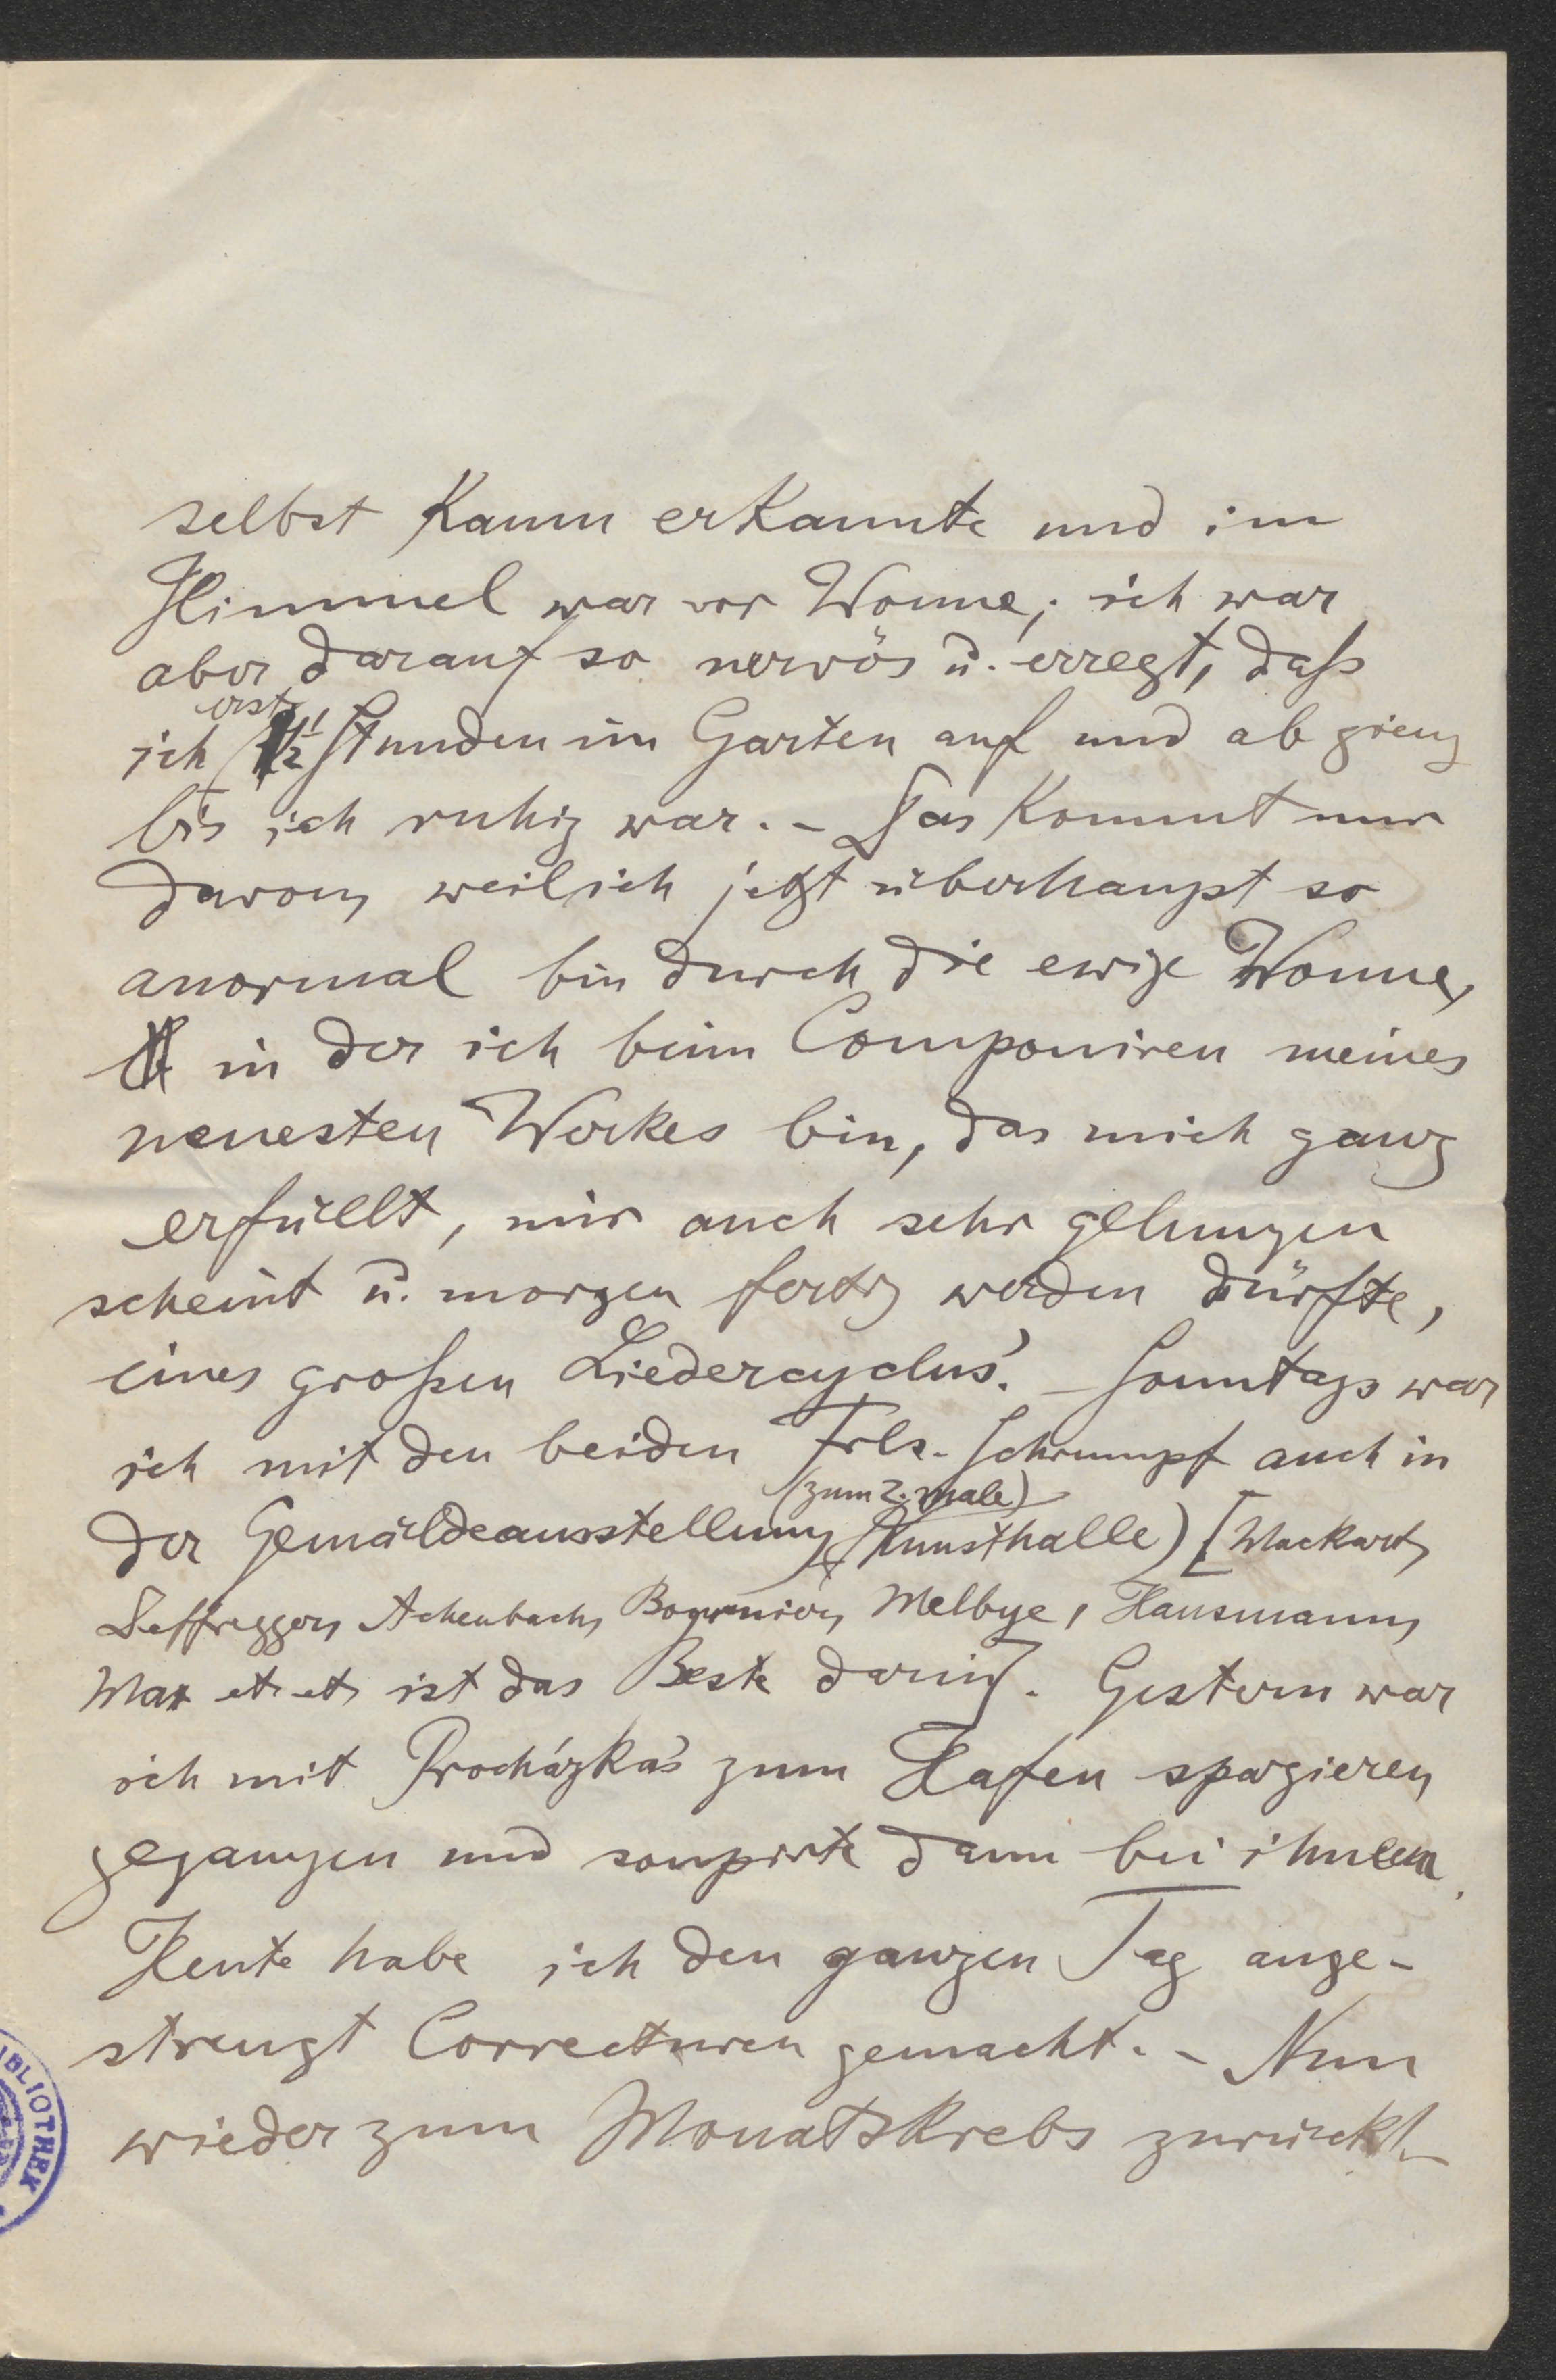 selbst kaum erkannte und im
Himmel war vor Wonne; ich war
aber darauf so nervös u. erregt, daß
erst
ich 1½ Stunden im Garten auf und ab gieng
bis ich ruhig war. - Das kommt nur
davon, weil ich jetzt überhaupt so
anormal bin durch die ewige Wonne,
in der ich beim Componiren meines
neuesten Werkes bin, das mich ganz
erfüllt, mir auch sehr gelungen
scheint u. morgen fertig werden dürfte,
eines großen Liedercyclus'. - Sonntags war
ich mit den beiden Frls. Schrumpf auch in
(zum 2. male)
der Gemäldeausstellung (Kunsthalle) [Mackart,
Deffregger, Achenbach, Melbye, Hausmann,
Max etc etc ist das Beste darin]. Gestern war
ich mit Procházka's zum Hafen spazieren
gegangen und soupirte dann bei ihnen.
Heute habe ich den ganzen Tag ange-
strengt Correcturen gemacht. - Nun
wieder zum Monatskrebs zurück! -
BLIOTHEK